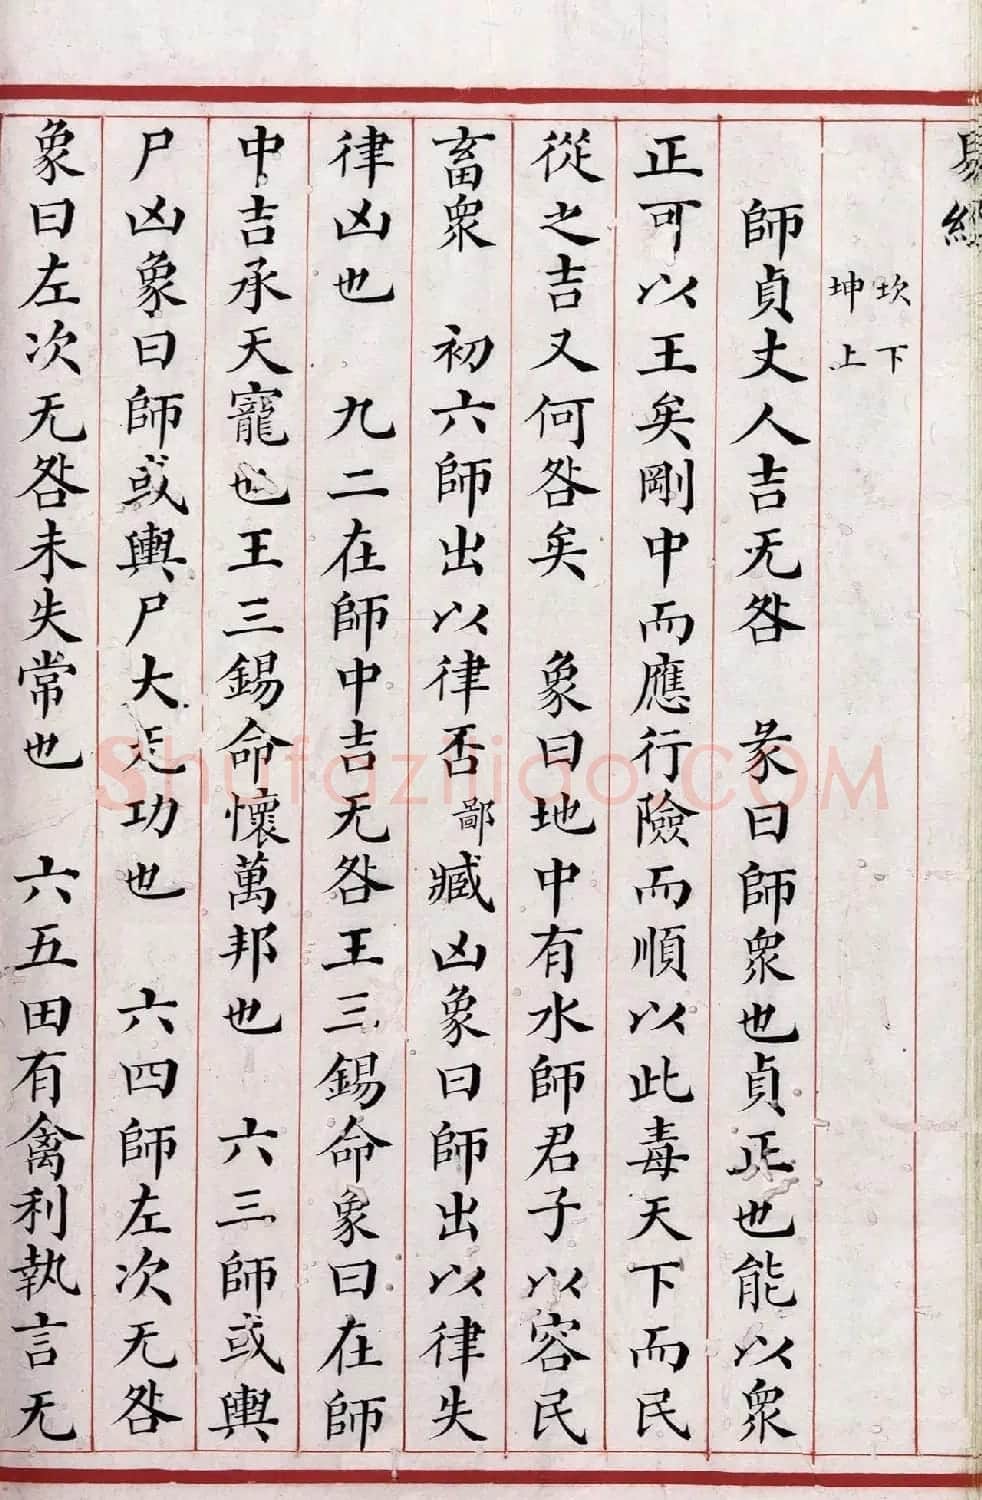 易經
坎下
坤上
師貞丈人吉无咎　彖曰師衆也貞正也能以衆
正可以王矣剛中而應行險而順以此毒天下而民
從之吉又何咎矣　象曰地中有水師君子以容民
畜衆　初六師出以律否鄙臧凶象曰師出以律失
律凶也　九二在師中吉无咎王三錫命象曰在師
中吉承天寵也王三錫命懷萬邦也　六三師或輿
尸凶象曰師或輿尸大无功也　六四師左次无咎
象曰左次无咎未失常也　六五田有禽利執言无
Shufaziliao.COM